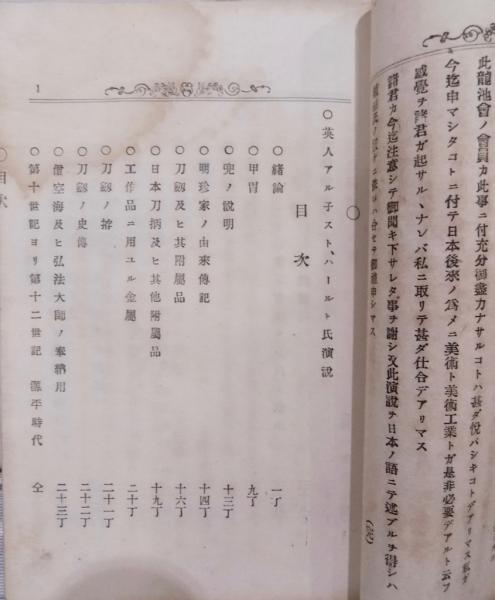 此龍池會ノ會員カ此事ニ付充分御盡力ナサルコトハ甚ダ悅バシキコトデアリマス私ガ
今迄申マシタコトニ付テ日本後來ノ爲メニ美術ト美術工業トガ是非必要デアルト云フ
感覺ヲ諸君ガ起サル、ナレバ私ニ取リテ甚ダ仕合デアリマス
諸君カ今迄注意シテ御聞キ下サレタ事ヲ謝シ又此演說ヲ日本ノ語ニテ述ブルヲ得シハ
合セテ御禮申シマス
(終)
1
目次
○英人アル子スト、ハールト氏演說
○緖論 一丁
○甲冑 九丁
○兜ノ說明 十三丁
○明珍家ノ由來傳記 十四丁
○刀劔及ヒ其附屬品 十六丁
○日本刀柄及ヒ其他附屬品 十九丁
○工作品ニ用ユル金屬 二十丁
○刀劔ノ拵 二十一丁
○刀劔ノ史傳 二十二丁
○僧空海及ヒ弘法大師ノ奉納用 二十三丁
○第十世紀ヨリ第十二世紀 源平時代 仝
○目次